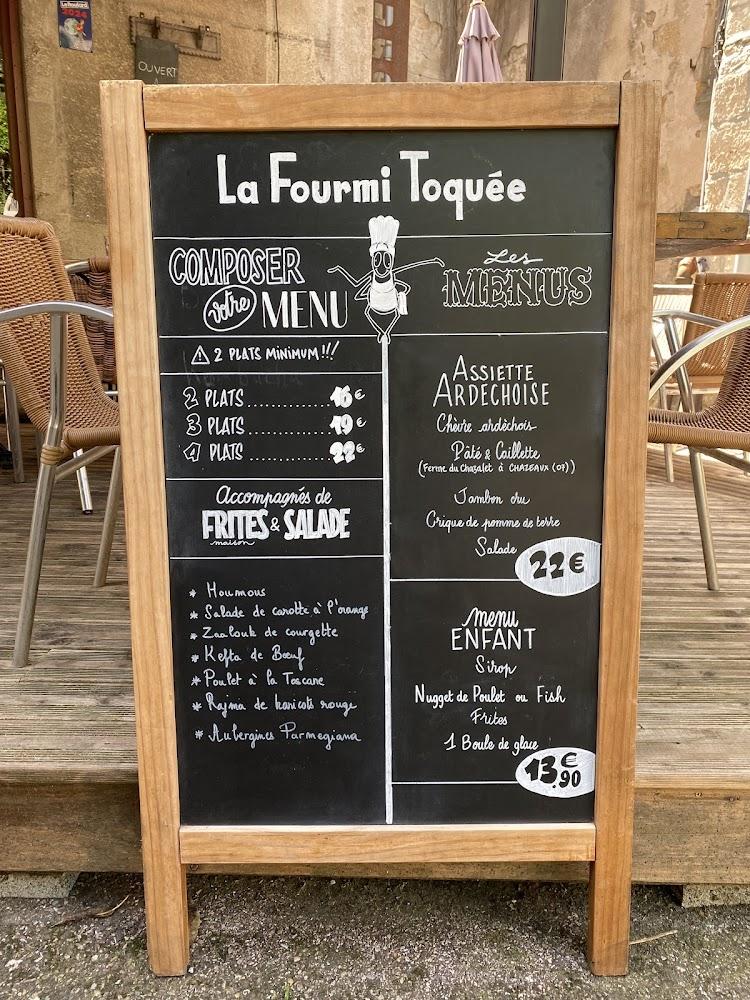 Le Routard
2024
OUVERT
La Fourmi Toquée
COMPOSER
votre MENU
⚠ 2 PLATS MINIMUM!!!
2 PLATS............16€
3 PLATS............19€
4 PLATS............22€
Accompagnés de
FRITES & SALADE
maison
* Houmous
* Salade de carotte à l'orange
* Zaalouk de courgette
* Kefta de Bœuf
* Poulet à la Toscane
* Rajma de haricots rouge
* Aubergines Parmegiana
Les
MENUS
ASSIETTE
ARDECHOISE
Chèvre ardèchois
Pâté & Caillette
(Ferme du Chazalet à CHAZEAUX (07))
Jambon cru
Crique de pomme de terre
Salade
22€
menu
ENFANT
Sirop
Nugget de Poulet ou Fish
Frites
1 Boule de glace
13€90